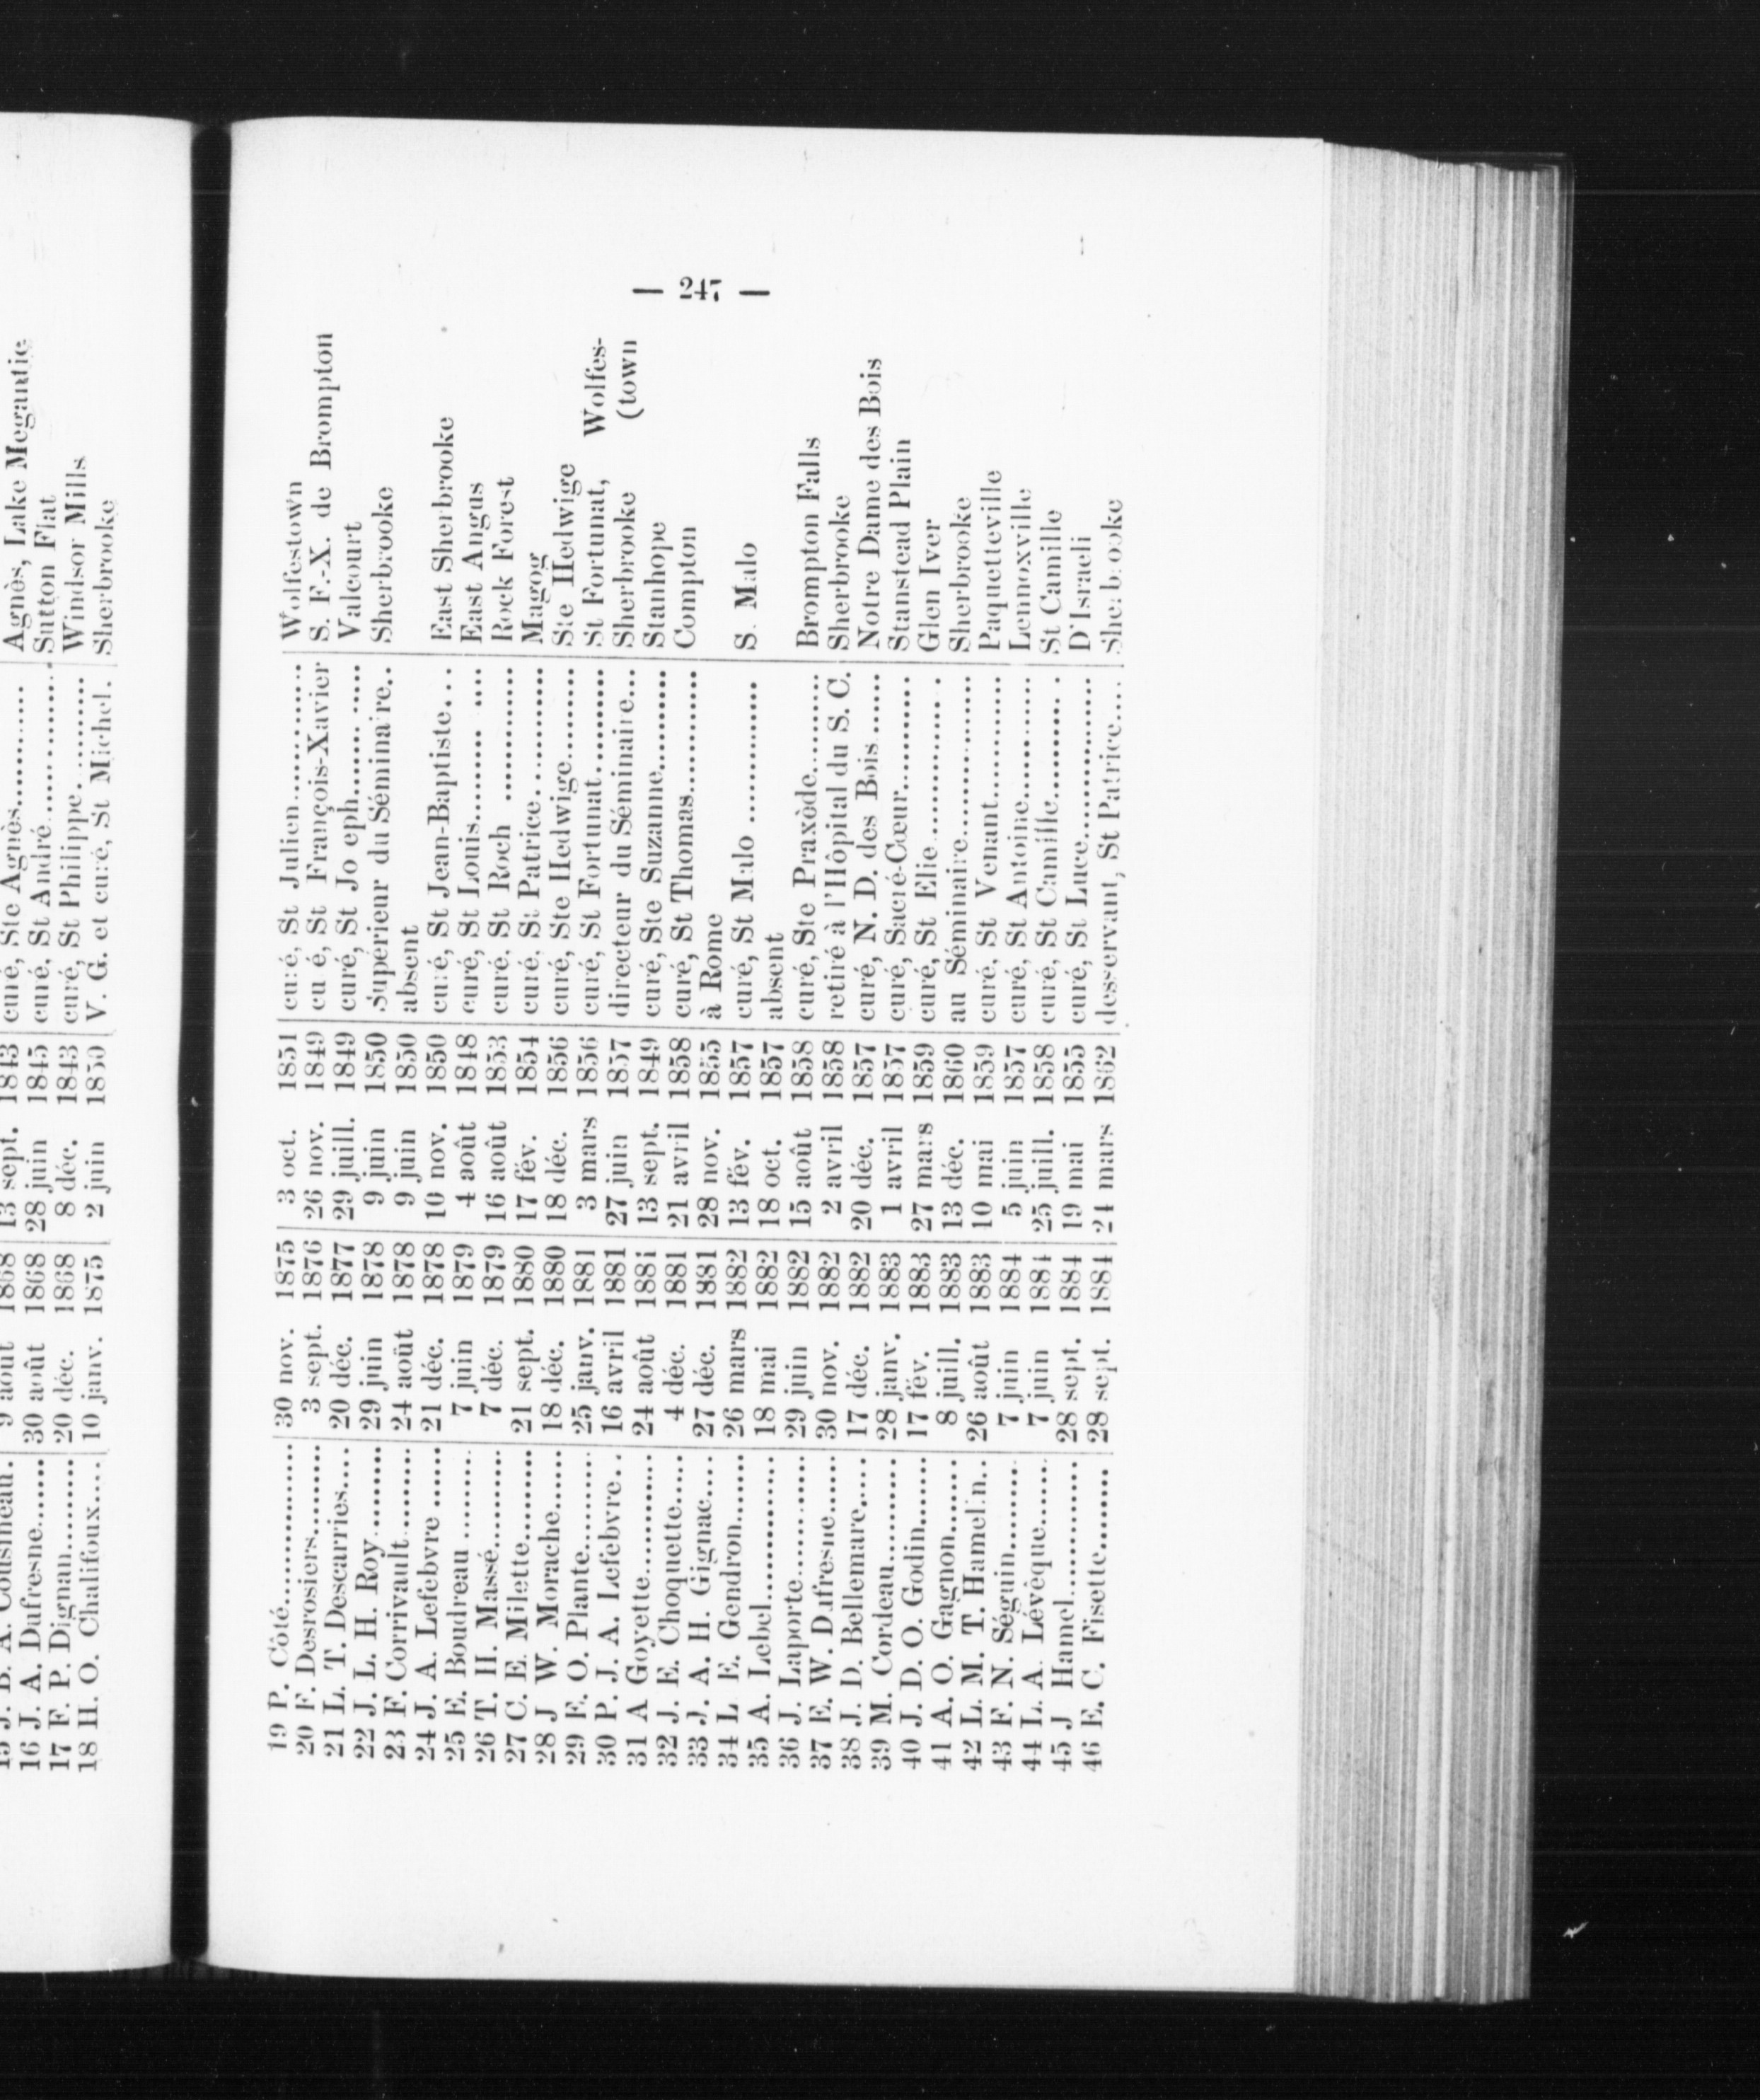 Agnès, Lake Megantic
curé, Ste Agnès 1843
16 J. A. Dufresne 30 août 1868 28 juin 1845 curé, St André Sutton Flat
17 F. P. Dignan 20 déc. 1868 8 déc. 1843 curé, St Philippe Windsor Mills
18 H. O. Chalifoux 10 janv. 1875 2 juin 1850 V. G. et curé, St Michel. Sherbrooke
— 247 —
19 P. Côté 30 nov. 1875 3 oct. 1851 curé, St Julien Wolfestown
20 F. Desrosiers 3 sept. 1876 26 nov. 1849 cu é, St François-Xavier S. F.-X. de Brompton
21 L. T. Descarries 20 déc. 1877 29 juill. 1849 curé, St Jo eph Valcourt
22 J. L. H. Roy 29 juin 1878 9 juin 1850 Supérieur du Séminaire Sherbrooke
23 F. Corrivault 24 août 1878 9 juin 1850 absent
24 J. A. Lefebvre 21 déc. 1878 10 nov. 1850 curé, St Jean-Baptiste East Sherbrooke
25 E. Boudreau 7 juin 1879 4 août 1848 curé, St Louis East Angus
26 T. H. Massé 7 déc. 1879 16 août 1853 curé, St Roch Rock Forest
27 C. E. Milette 21 sept. 1880 17 fév. 1854 curé, St Patrice Magog
28 J W. Morache 18 déc. 1880 18 déc. 1856 curé, Ste Hedwige Ste Hedwige
29 E. O. Plante 25 janv. 1881 3 mars 1856 curé, St Fortunat St Fortunat, Wolfes-
30 P. J. A. Lefebvre 16 avril 1881 27 juin 1857 directeur du Séminaire Sherbrooke (town
31 A Goyette 24 août 1881 13 sept. 1849 curé, Ste Suzanne Stanhope
32 J. E. Choquette 4 déc. 1881 21 avril 1858 curé, St Thomas Compton
33 J. A. H. Gignac 27 déc. 1881 28 nov. 1855 à Rome
34 L E. Gendron 26 mars 1882 13 fév. 1857 curé, St Malo S. Malo
35 A. Lebel 18 mai 1882 18 oct. 1857 absent
36 J. Laporte 29 juin 1882 15 août 1858 curé, Ste Praxède Brompton Falls
37 E. W. Dufresne 30 nov. 1882 2 avril 1858 retiré à l'Hôpital du S. C. Sherbrooke
38 J. D. Bellemare 17 déc. 1882 20 déc. 1857 curé, N. D. des Bois Notre Dame des Bois
39 M. Cordeau 28 janv. 1883 1 avril 1857 curé, Sacré-Cœur Stanstead Plain
40 J. D. O. Godin 17 fév. 1883 27 mars 1859 curé, St Elie Glen Iver
41 A. O. Gagnon 8 juill. 1883 13 déc. 1860 au Séminaire Sherbrooke
42 L. M. T. Hamelin 26 août 1883 10 mai 1859 curé, St Venant Paquetteville
43 F. N. Séguin 7 juin 1884 5 juin 1857 curé, St Antoine Lennoxville
44 L. A. Lévêque 7 juin 1884 25 juill. 1858 curé, St Camille St Camille
45 J Hamel 28 sept. 1884 19 mai 1855 curé, St Luce D'Israeli
46 E. C. Fisette 28 sept. 1884 24 mars 1862 desservant, St Patrice Sherbrooke